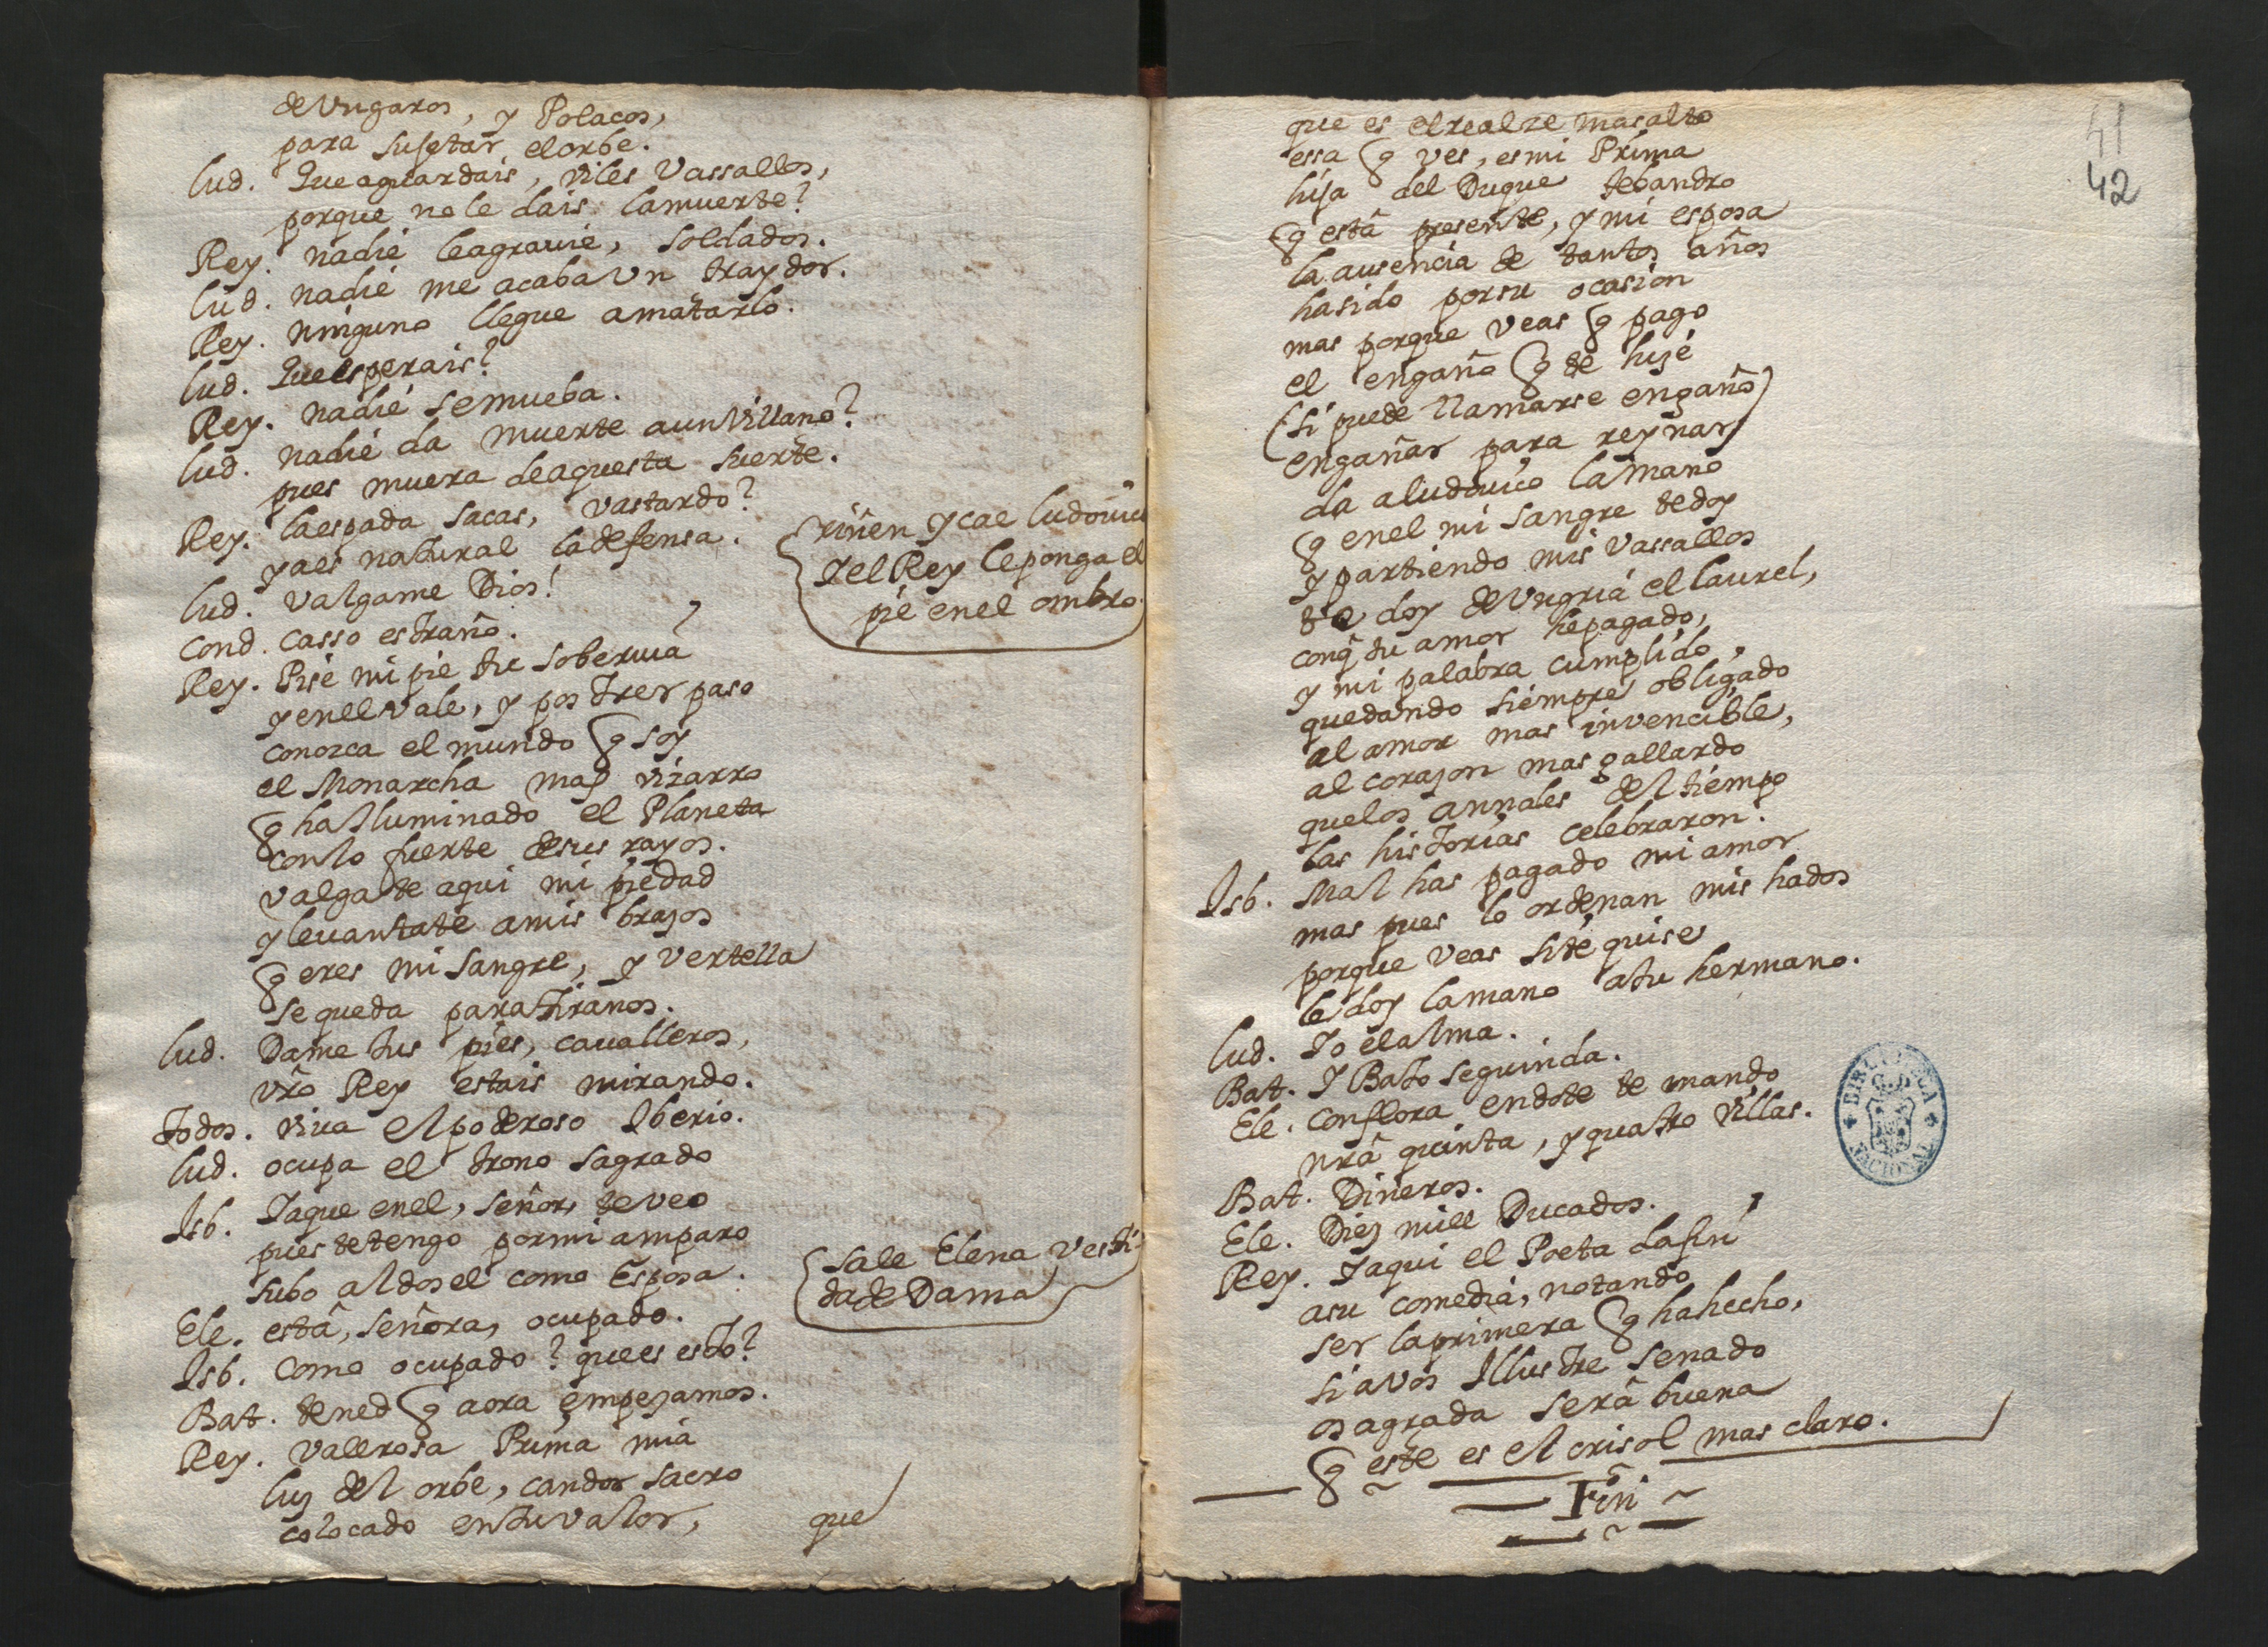 de Vngaros, y Polacos,
para sujetar el orbe.
Lud. Que aguardais, viles Vassallos,
porque no le dais la muerte?
Rey. nadie le agrauie, soldados.
Lud. nadie me acaba Vn traydor.
Rey. ninguno llegue a matarlo.
Lud. Que esperais?
Rey. nadie se mueba.
Lud. nadie da muerte a un Villano?
pues muera de aquesta suerte.
Rey. la espada sacas, vastardo?
ya es natural la defensa.
riñen y cae Ludouico
y el Rey le ponga el
pie en el ombro.
Lud. Valgame Dios!
Cond. Casso estraño.
Rey. Pise mi pie tu soberuia
y en el vale, y postrer paso
conozca el mundo q soy
el Monarcha mas vizarro
q ha Iluminado el Planeta
con lo fuerte de sus rayos.
valgate aqui mi piedad
y leuantate a mis brazos
q eres mi sangre, y vertella
se queda para tiranos.
Lud. Dame tus pies, caualleros,
vro Rey estais mirando.
Todos. viua el poderoso Iberio.
Lud. ocupa el trono sagrado
Isb. Ya que en el, señor, te veo
pues te tengo por mi amparo
subo al dosel como Esposa.
Sale Elena vesti-
da de Dama
Ele. está, señora, ocupado.
Isb. Como ocupado? que es esto?
Bat. tened q aora empezamos.
Rey. Vallrosa Prima mia
luz del orbe, candor sacro
colocado en tu valor,
que
41
42
que es el realze mas alto
essa q ves, es mi Prima
hija del Duque Tebandro
q está presente, y mi esposa
la ausencia de tantos años
ha sido por su ocasion
mas porque veas q pago
el engaño q te hize
(si puede llamarse engaño)
engañar para reynar)
da a ludouico la mano
q en el mi sangre te doy
y partiendo mis Vassallos
te doy de Vngria el laurel,
conq tu amor he pagado,
y mi palabra cumplido,
quedando siempre obligado
al amor mas invencible,
al corazon mas gallardo
que los annales del tiempo
las historias celebraron.
Isb. Mal has pagado mi amor
mas pues lo ordenan mis hados
porque veas si te quise
le doy la mano a tu hermano.
Lud. Yo el alma.
Bat. Y Bato seguinda.
Ele. Con flora en dote te mando
nrâ quinta, y quatro villas.
Bat. Dineros.
Ele. Diez mill Ducados.
Rey. Y aqui el Poeta da fin
a su comedia, notando
ser la primera q ha hecho,
si a vos Illustre Senado
os agrada será buena
q este es el crisol mas claro.
Fin
BIBLIOTECA NACIONAL